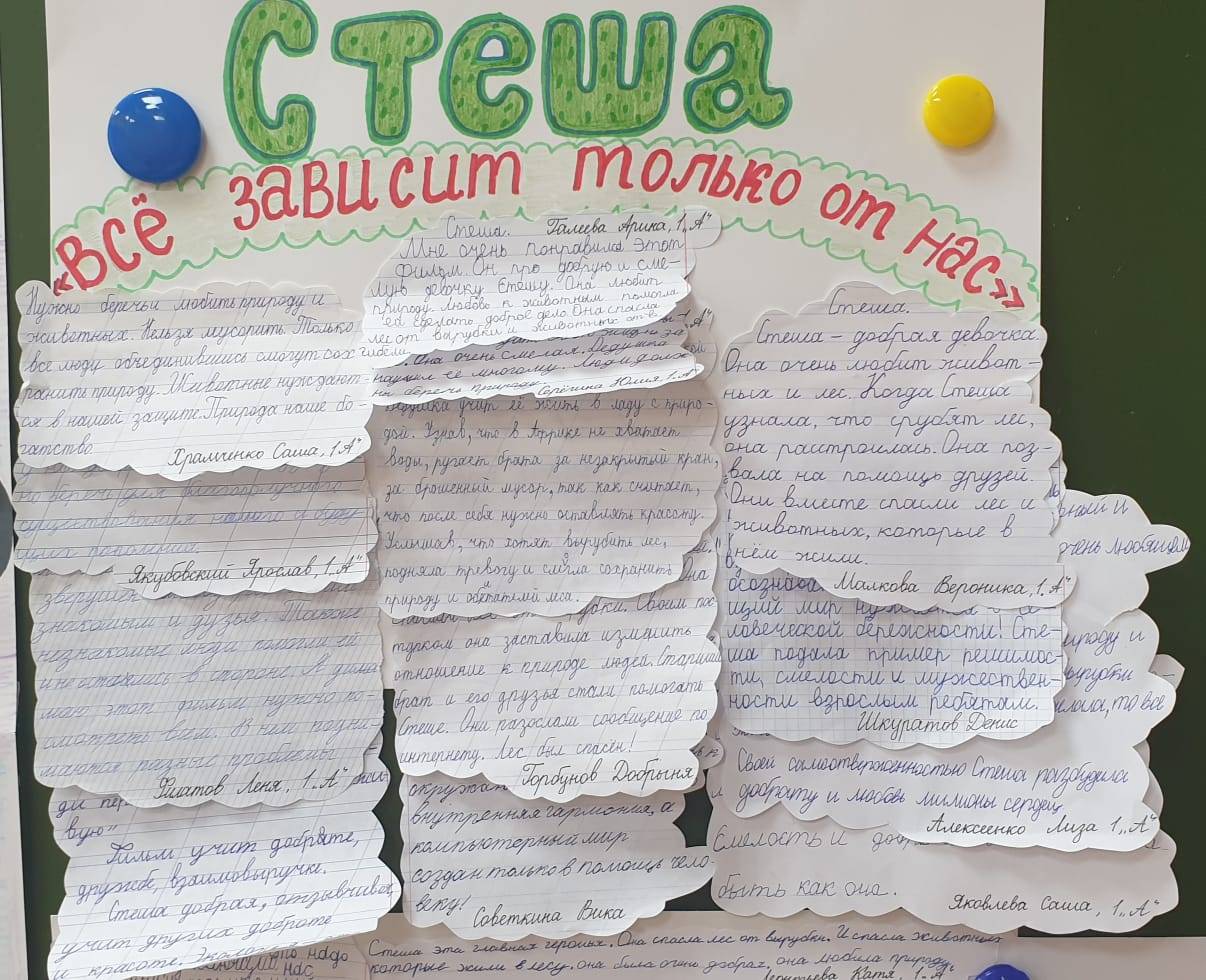 Стеша
«Всё зависит только от нас»
Нужно беречь и любить природу и
животных. Нельзя мусорить. Только
все люди объединившись смогут сох
ранить природу. Животные нуждают-
ся в нашей защите. Природа наше бо-
гатство.
Храмченко Саша, 1„А"
существования нашего и буду-
щих поколений.
Якубовский Ярослав, 1„А"
знакомым и друзья. Также
незнакомые люди помогли ей
и не остались в стороне. Я дума
маю этот фильм нужно по-
смотреть всем. В нём подни-
маются разные проблемы
Филатов Леня, 1„А"
вую"
Фильм учит доброте,
дружбе, взаимовыручке.
Стеша добрая, отзывчивая,
учит других доброте
и красоте.
Стеша. Галеева Арика, 1„А"
Мне очень понравился этот
фильм. Он про добрую и сме-
лую девочку Стешу. Она любит
природу. Любовь к животным помогла
ей сделать доброе дело. Она спасла
лес от вырубки и животных от
гибели.
Она очень смелая. Дедушка
научил её многому. Люди долж
ны беречь природу.
Серёгина Юлия, 1„А"
Дедушка учит её жить в ладу с приро-
дой. Узнав, что в Африке не хватает
воды, ругает брата за незакрытый кран,
за брошенный мусор, так как считает,
что после себя нужно оставлять красоту.
Услышав, что хотят вырубить лес,
подняла тревогу и смогла сохранить
природу и обитателей леса.
Своим пос
тупком она заставила изменить
отношение к природе людей. Старший
брат и его друзья стали помогать
Стеше. Они разослали сообщение по
интернету. Лес был спасён!
Горбунов Добрыня
внутренняя гармония, а
компьютерный мир
создан только в помощь чело-
веку!
Советкина Вика
Стеша.
Стеша – добрая девочка.
Она очень любит живот-
ных и лес. Когда Стеша
узнала, что срубят лес,
она расстроилась. Она поз-
вала на помощь друзей.
Они вместе спасли лес и
животных, которые в
нём жили.
Малкова Вероника, 1„А"
щий мир
ловеческой бережности! Сте-
ша подала пример решимос-
ти, смелости и мужествен-
ности взрослым ребятам.
Шкуратов Денис
очень любящем
природу и
вырубки –
то всё
Своей самоотверженностью Стеша разбудила
доброту и любовь милионы сердец.
Алексеенко Лиза 1„А"
Смелость и
быть как она.
Яковлева Саша, 1„А"
Стеша эта главная героиня. Она спасла лес от вырубки. И спасла животных
которые жили в лесу. она была очень добрая, она любила природу.
Катя, 1„А"